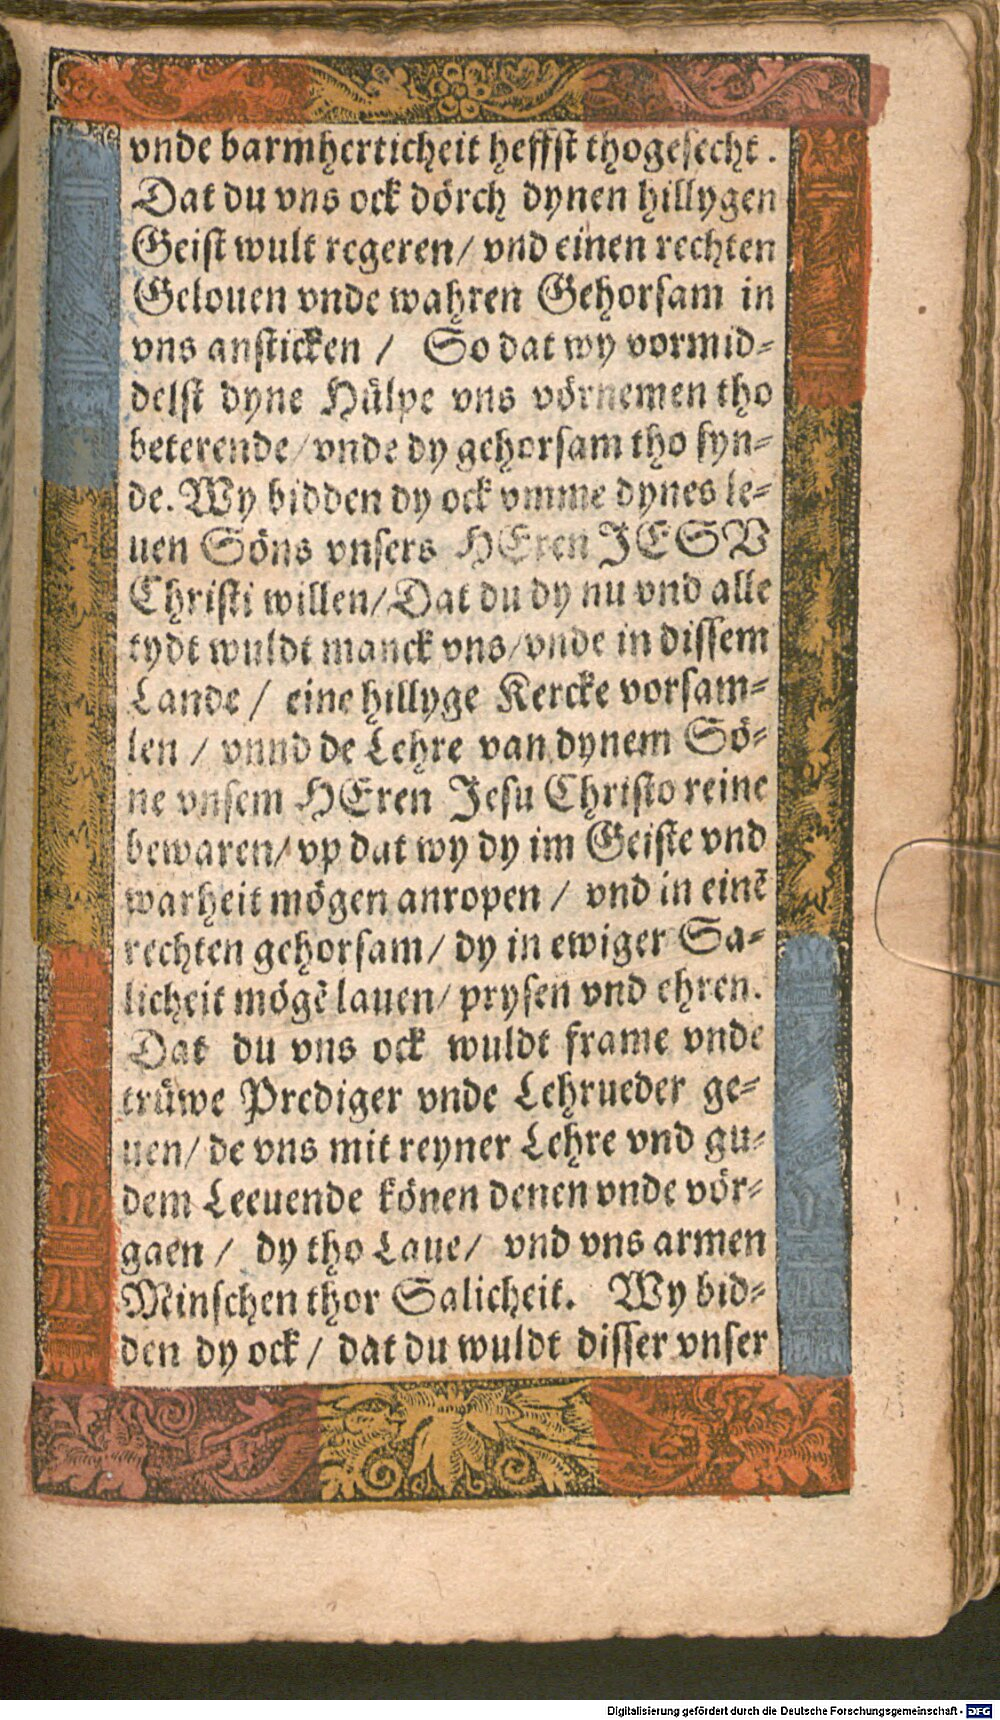 vnde barmherticheit heffst thogesecht.
Dat du vns ock dörch dynen hillygen
Geist wult regeren/ vnd einen rechten
Gelouen vnde wahren Gehorsam in
vns ansticken / So dat wy vormid-
delst dyne Hülpe vns vörnemen tho
beterende/vnde dy gehorsam tho syn-
de. Wy bidden dy ock vmme dynes le-
uen Söns vnsers HEren JESV
Christi willen/Dat du dy nu vnd alle
tydt wuldt manck vns/vnde in dissem
Lande / eine hillyge Kercke vorsam-
len / vnnd de Lehre van dynem Sö-
ne vnsem HEren Jesu Christo reine
bewaren/ vp dat wy dy im Geiste vnd
warheit mögen anropen / vnd in einē
rechten gehorsam/ dy in ewiger Sa-
licheit mögē lauen/ prysen vnd ehren.
Dat du vns ock wuldt frame vnde
trüwe Prediger vnde Lehrueder ge-
uen/ de vns mit reyner Lehre vnd gu-
dem Leeuende könen denen vnde vör-
gaen / dy tho Laue/ vnd vns armen
Minschen thor Salicheit. Wy bid-
den dy ock / dat du wuldt disser vnser
Digitalisierung gefördert durch die Deutsche Forschungsgemeinschaft - DFG